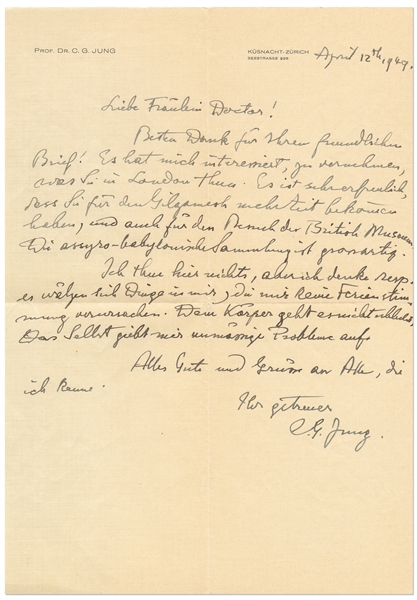 PROF. DR. C. G. JUNG
KÜSNACHT-ZÜRICH
SEESTRASSE 228
April 12th, 1949.
Liebe Fräulein Doctor!
Besten Dank für Ihren freundlichen
Brief! Es hat mich interessiert, zu vernehmen,
was Sie in London thun. Es ist sehr erfreulich,
dass Sie für den Gilgamesh mehr Zeit bekommen
haben, und auch für den Besuch des British Museum.
Die assyro-babylonische Sammlung ist grossartig.
Ich thue hier nichts, aber ich denke resp.
es wälzen sich Dinge in mir, die mir keine Ferienstim-
mung verursachen. Dem Körper geht es nicht schlecht.
Das Selbst giebt mir unmässige Probleme auf.
Alles Gute und Grüsse an Alle, die
ich kenne.
Ihr getreuer
C. G. Jung.